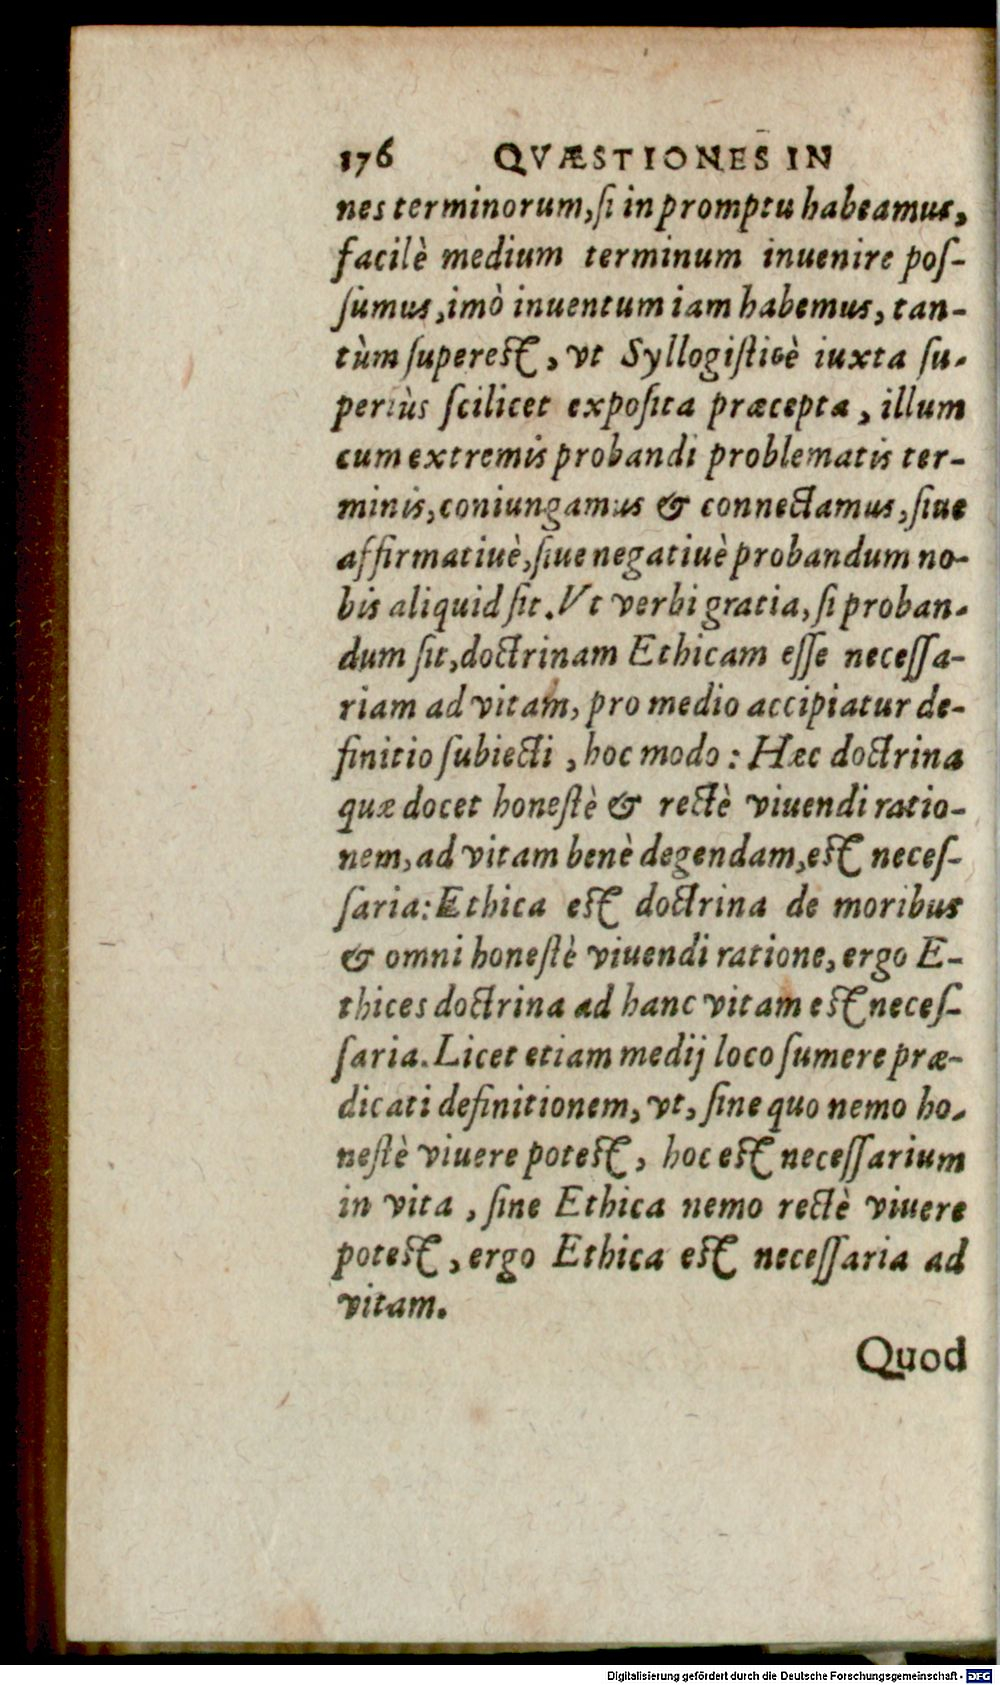 176 QVÆSTIONES IN
nes terminorum, ſi in promptu habeamus,
facilè medium terminum inuenire poſ-
ſumus, imò inuentum iam habemus, tan-
tùm ſupereſt, vt Syllogiſticè iuxta ſu-
periùs ſcilicet expoſita præcepta, illum
cum extremis probandi problematis ter-
minis, coniungamus & connectamus, ſiue
affirmatiuè, ſiue negatiuè probandum no-
bis aliquid ſit. Vt verbi gratia, ſi proban-
dum ſit, doctrinam Ethicam eſſe neceſſa-
riam ad vitam, pro medio accipiatur de-
finitio ſubiecti, hoc modo: Hæc doctrina
quæ docet honeſtè & rectè viuendi ratio-
nem, ad vitam benè degendam, eſt neceſ-
ſaria: Ethica eſt doctrina de moribus
& omni honeſtè viuendi ratione, ergo E-
thices doctrina ad hanc vitam eſt neceſ-
ſaria. Licet etiam medij loco ſumere præ-
dicati definitionem, vt, ſine quo nemo ho-
neſtè viuere poteſt, hoc eſt neceſſarium
in vita, ſine Ethica nemo rectè viuere
poteſt, ergo Ethica eſt neceſſaria ad
vitam.
Quod
Digitalisierung gefördert durch die Deutsche Forschungsgemeinschaft - DFG